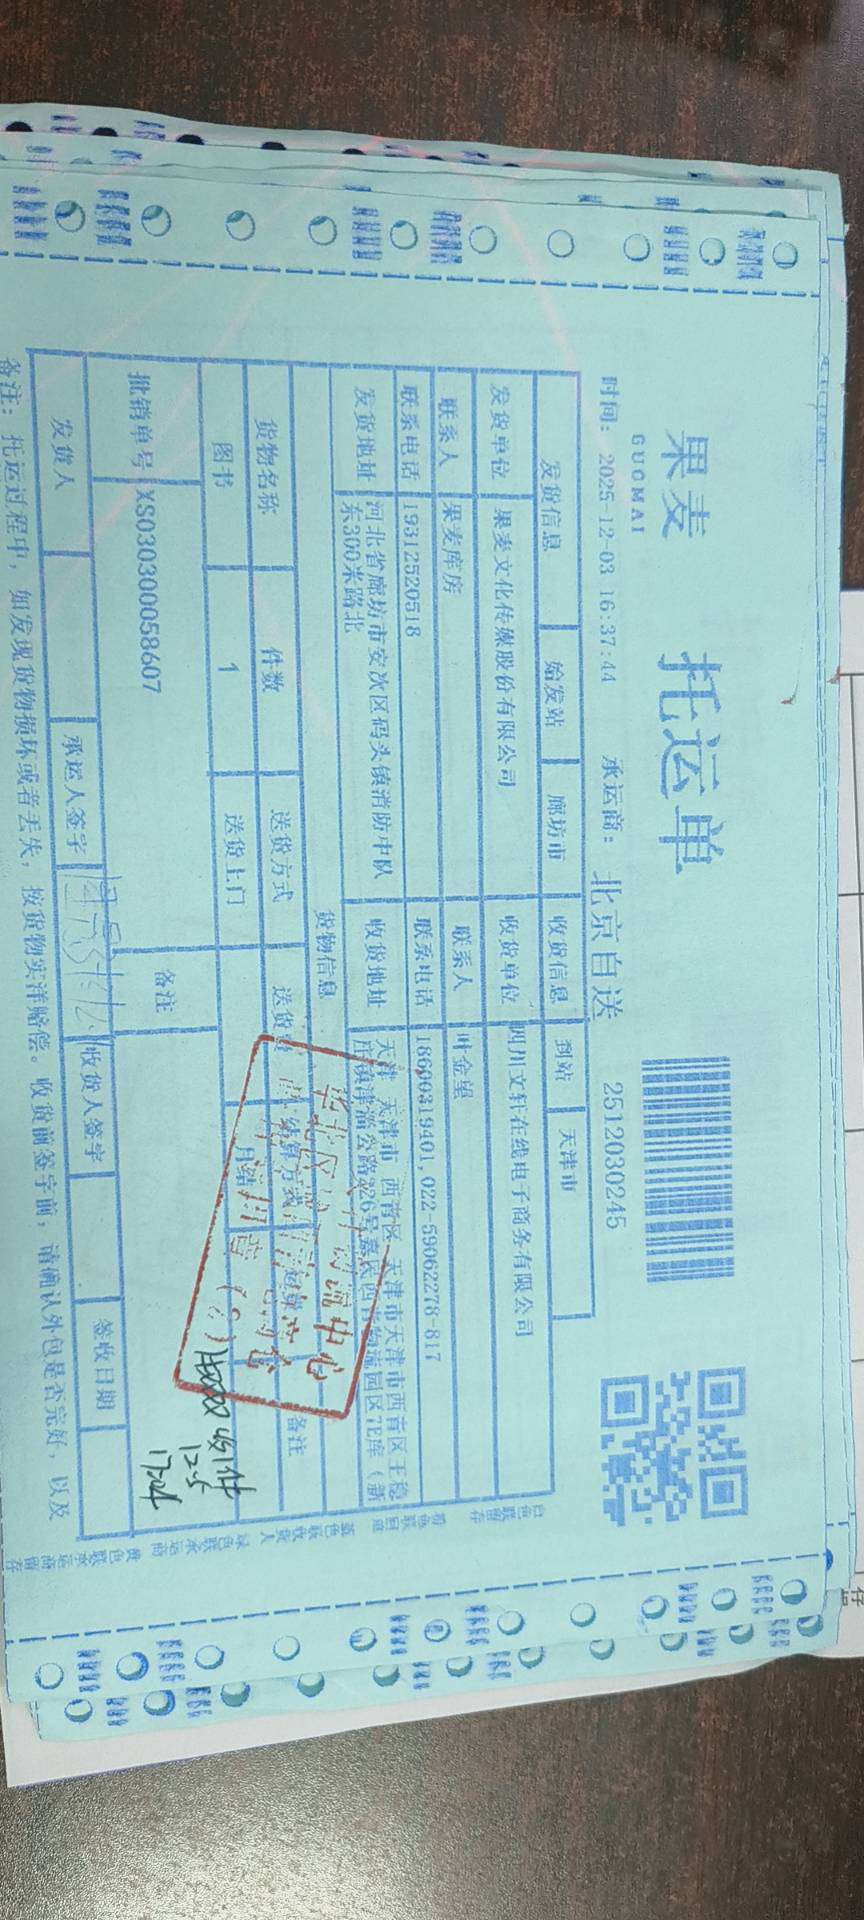 果麦
GUOMAI
托运单
时间: 2025-12-03 16:37:44 承运商: 北京自送 2512030245
发货信息 始发站 廊坊市 收货信息 到站 天津市
发货单位 果麦文化传媒股份有限公司 收货单位 四川文轩在线电子商务有限公司
联系人 果麦库房 联系人 叶金望
联系电话 19312520518 联系电话 18600319401,022-59062278-817
发货地址 河北省廊坊市安次区码头镇消防中队
东300米路北
收货地址 天津 天津市 西青区 天津市天津市西青区王稳
庄镇津淄公路226号嘉民西青物流园区7E库(新
货物信息
货物名称 件数 送货方式 送货 结算方式 备注
图书 1 送货上门 月结
批销单号 XS030300058607 备注
发货人 承运人签字 收货人签字 签收日期
备注: 托运过程中, 如发现货物损坏或者丢失, 按货物实洋赔偿。收货前签字前, 请确认外包是否完好, 以及
白色联留存
粉色联回单
蓝色联收货人
绿色联承运商
黄色联承运商留存
收1件
12.5